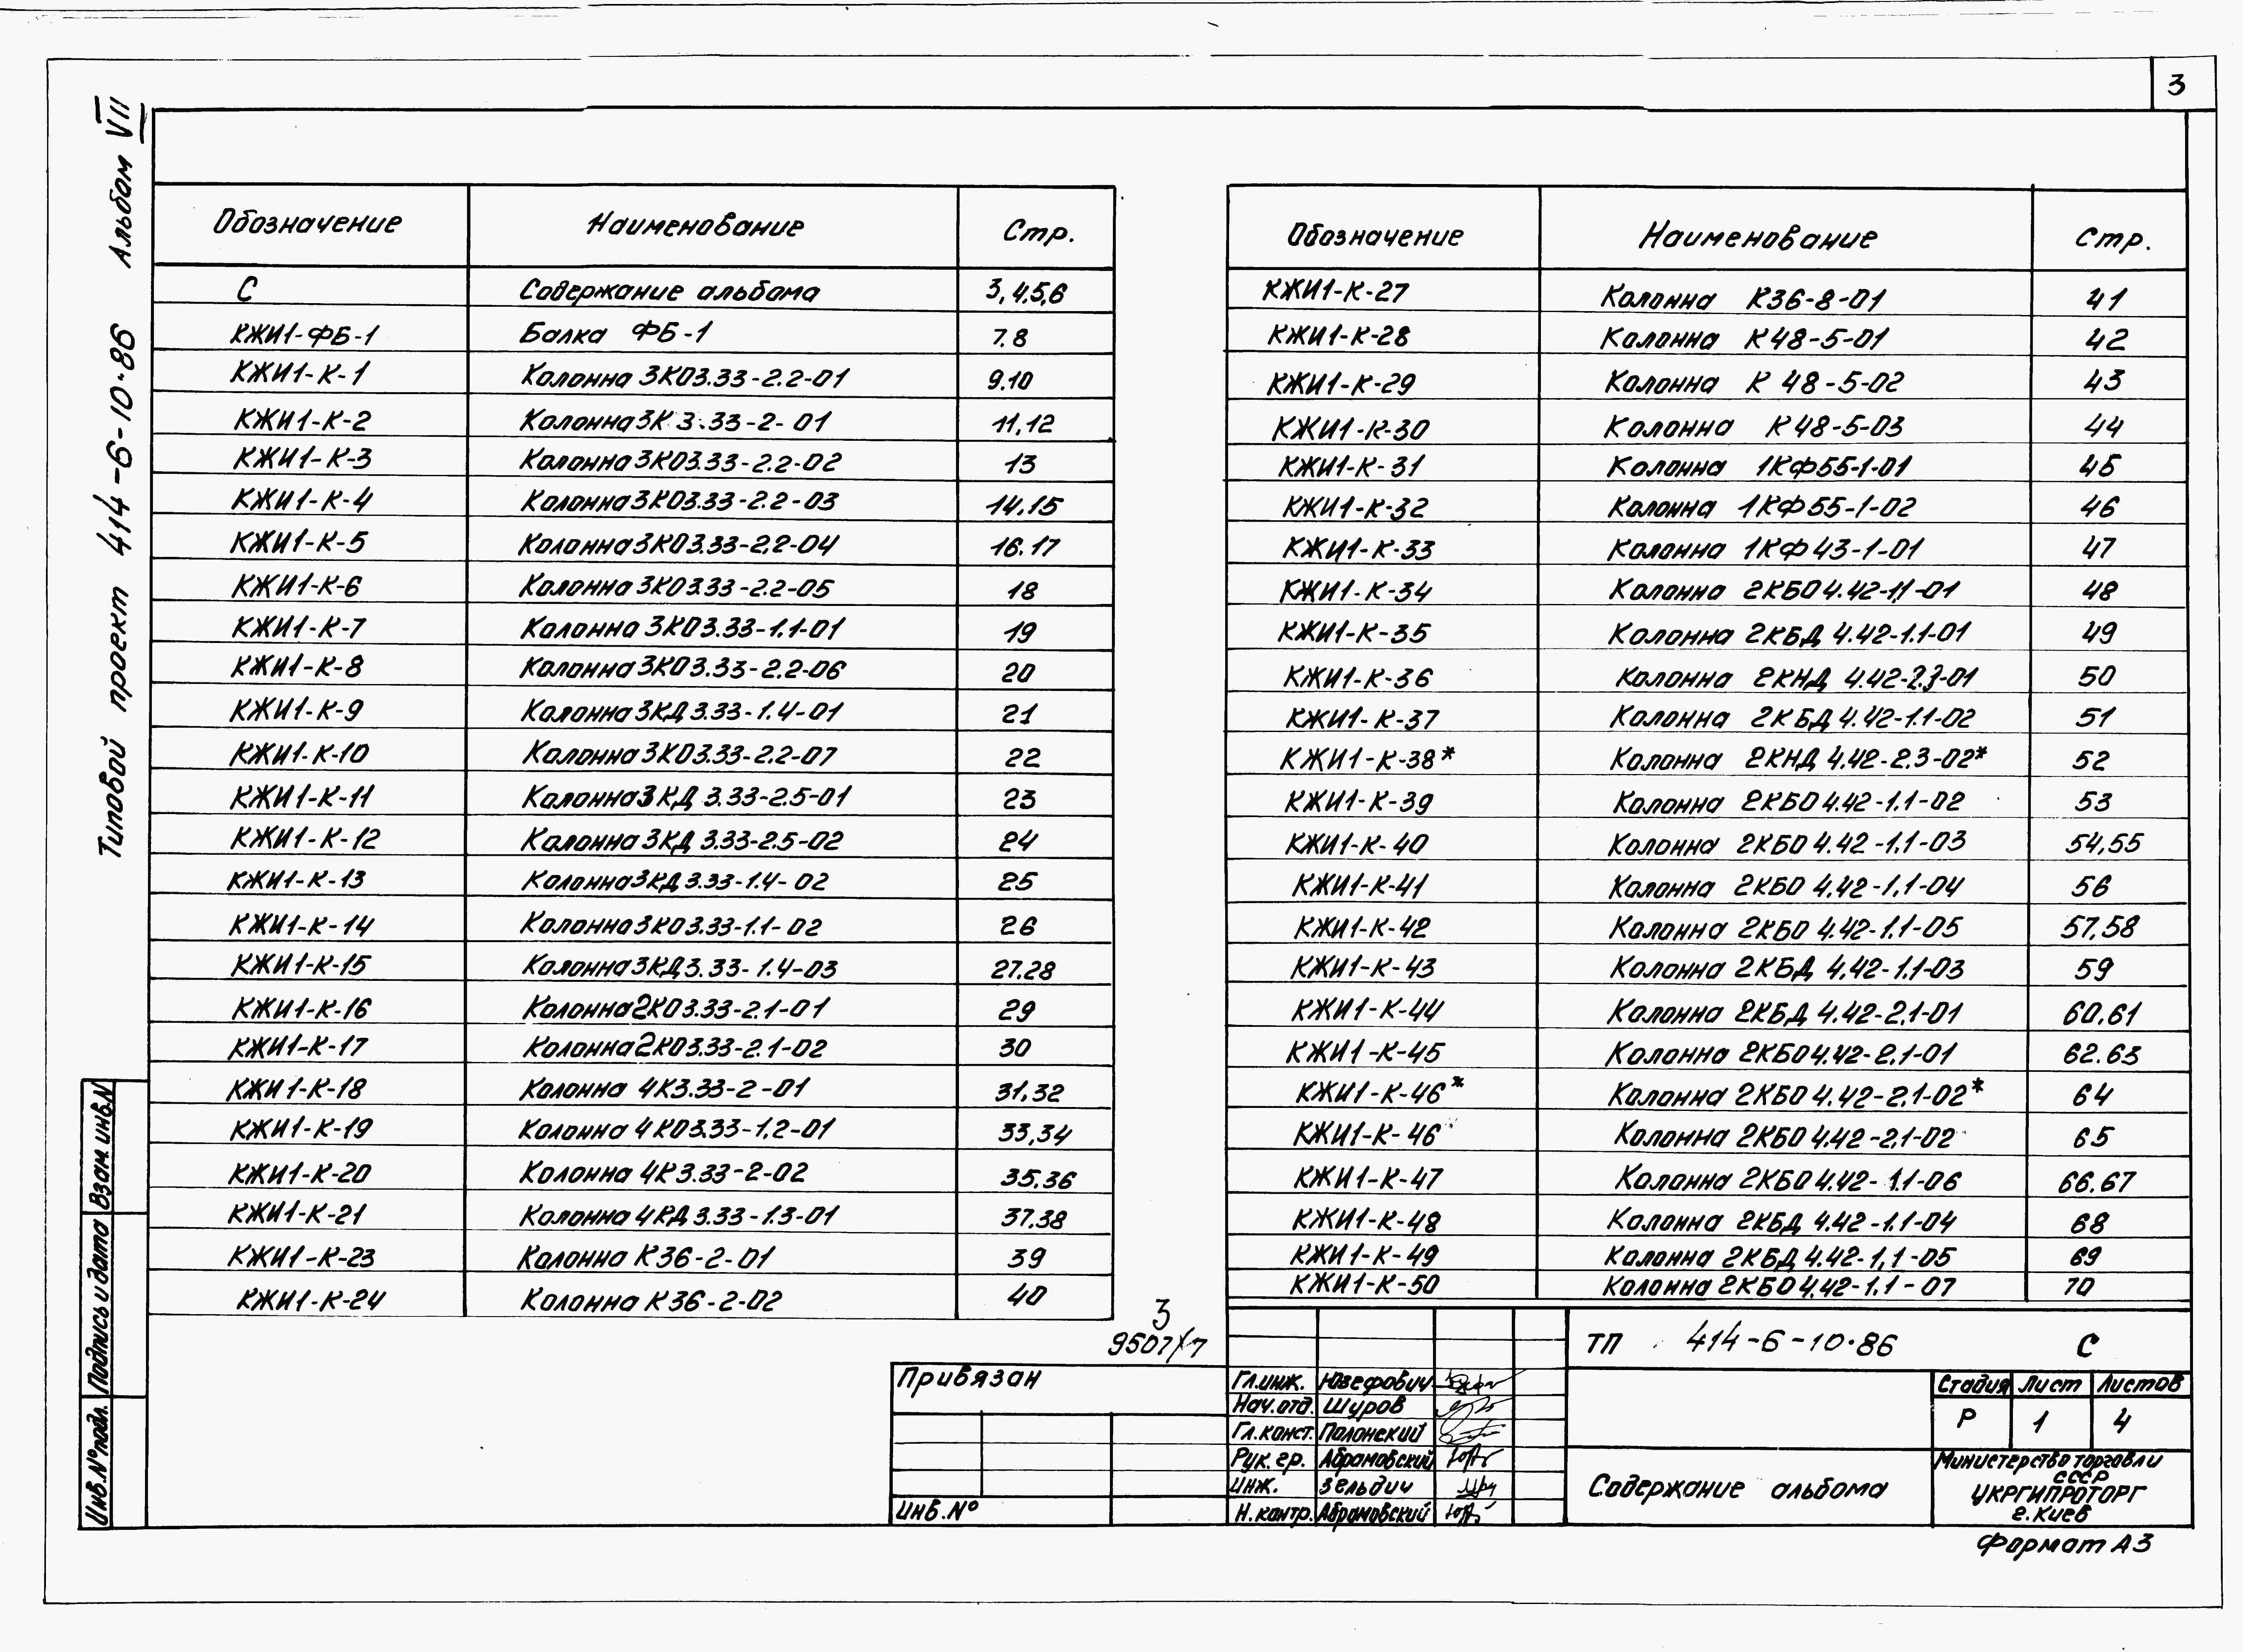 3
Типовой проект 414-6-10.86 Альбом VII
Обозначение Наименование Стр.
С Содержание альбома 3,4,5,6
КЖИ1-ФБ-1 Балка ФБ-1 7.8
КЖИ1-К-1 Колонна 3КО3.33-2.2-01 9.10
КЖИ1-К-2 Колонна 3К 3.33-2-01 11,12
КЖИ1-К-3 Колонна 3КО3.33-2.2-02 13
КЖИ1-К-4 Колонна 3КО3.33-2.2-03 14,15
КЖИ1-К-5 Колонна 3КО3.33-2.2-04 16.17
КЖИ1-К-6 Колонна 3КО3.33-2.2-05 18
КЖИ1-К-7 Колонна 3КО3.33-1.1-01 19
КЖИ1-К-8 Колонна 3КО3.33-2.2-06 20
КЖИ1-К-9 Колонна 3КД3.33-1.4-01 21
КЖИ1-К-10 Колонна 3КО3.33-2.2-07 22
КЖИ1-К-11 Колонна 3КД 3.33-2.5-01 23
КЖИ1-К-12 Колонна 3КД 3.33-2.5-02 24
КЖИ1-К-13 Колонна 3КД3.33-1.4-02 25
КЖИ1-К-14 Колонна 3КО3.33-1.1-02 26
КЖИ1-К-15 Колонна 3КД3.33-1.4-03 27.28
КЖИ1-К-16 Колонна 2КО3.33-2.1-01 29
КЖИ1-К-17 Колонна 2КО3.33-2.1-02 30
КЖИ1-К-18 Колонна 4К3.33-2-01 31,32
КЖИ1-К-19 Колонна 4КО3.33-1.2-01 33,34
КЖИ1-К-20 Колонна 4К3.33-2-02 35,36
КЖИ1-К-21 Колонна 4КД3.33-1.3-01 37,38
КЖИ1-К-23 Колонна К36-2-01 39
КЖИ1-К-24 Колонна К36-2-02 40
Обозначение Наименование Стр.
КЖИ1-К-27 Колонна К36-8-01 41
КЖИ1-К-28 Колонна К48-5-01 42
КЖИ1-К-29 Колонна К 48-5-02 43
КЖИ1-К-30 Колонна К48-5-03 44
КЖИ1-К-31 Колонна 1КФ55-1-01 45
КЖИ1-К-32 Колонна 1КФ55-1-02 46
КЖИ1-К-33 Колонна 1КФ43-1-01 47
КЖИ1-К-34 Колонна 2КБО4.42-1.1-01 48
КЖИ1-К-35 Колонна 2КБД 4.42-1.1-01 49
КЖИ1-К-36 Колонна 2КНД 4.42-2.3-01 50
КЖИ1-К-37 Колонна 2КБД4.42-1.1-02 51
КЖИ1-К-38* Колонна 2КНД4.42-2.3-02* 52
КЖИ1-К-39 Колонна 2КБО4.42-1.1-02 53
КЖИ1-К-40 Колонна 2КБО4.42-1.1-03 54,55
КЖИ1-К-41 Колонна 2КБО 4.42-1.1-04 56
КЖИ1-К-42 Колонна 2КБО 4.42-1.1-05 57,58
КЖИ1-К-43 Колонна 2КБД 4.42-1.1-03 59
КЖИ1-К-44 Колонна 2КБД 4.42-2.1-01 60,61
КЖИ1-К-45 Колонна 2КБО4.42-2.1-01 62.63
КЖИ1-К-46* Колонна 2КБО4.42-2.1-02* 64
КЖИ1-К-46 Колонна 2КБО4.42-2.1-02 65
КЖИ1-К-47 Колонна 2КБО4.42-1.1-06 66.67
КЖИ1-К-48 Колонна 2КБД 4.42-1.1-04 68
КЖИ1-К-49 Колонна 2КБД4.42-1.1-05 69
КЖИ1-К-50 Колонна 2КБО4.42-1.1-07 70
3
9507/7
Привязан
Инв.№
Гл.инж. Юзефович
Нач.отд. Шуров
Гл.конст. Полонский
Рук.гр. Абрамовский
Инж. Зельдич
Н.контр. Абрамовский
ТП 414-6-10.86 С
Стадия Лист Листов
Р 1 4
Содержание альбома
Министерство торговли
СССР
УКРГИПРОТОРГ
г.Киев
Формат А3
Инв.№подл. Подпись и дата Взам.инв.N